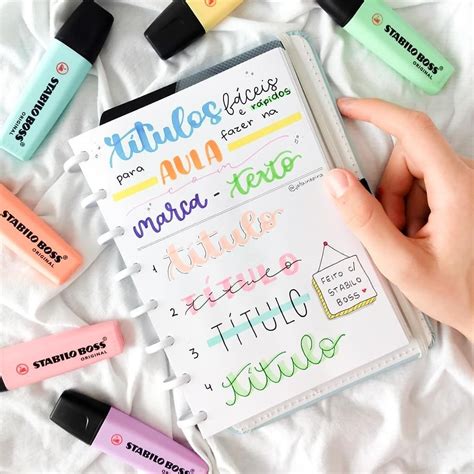 títulos fáceis
e rápidos
para AULA fazer na
com
marca-texto
1 título
2 TÍTULO título
3 TÍTULO
4 título
FEITO C/
STABILO
BOSS
STABILO BOSS
ORIGINAL
STABILO BOSS
ORIGINAL
STABILO BOSS
ORIGINAL
STABILO BOSS
ORIGINAL
STABILO BOSS
ORIGINAL